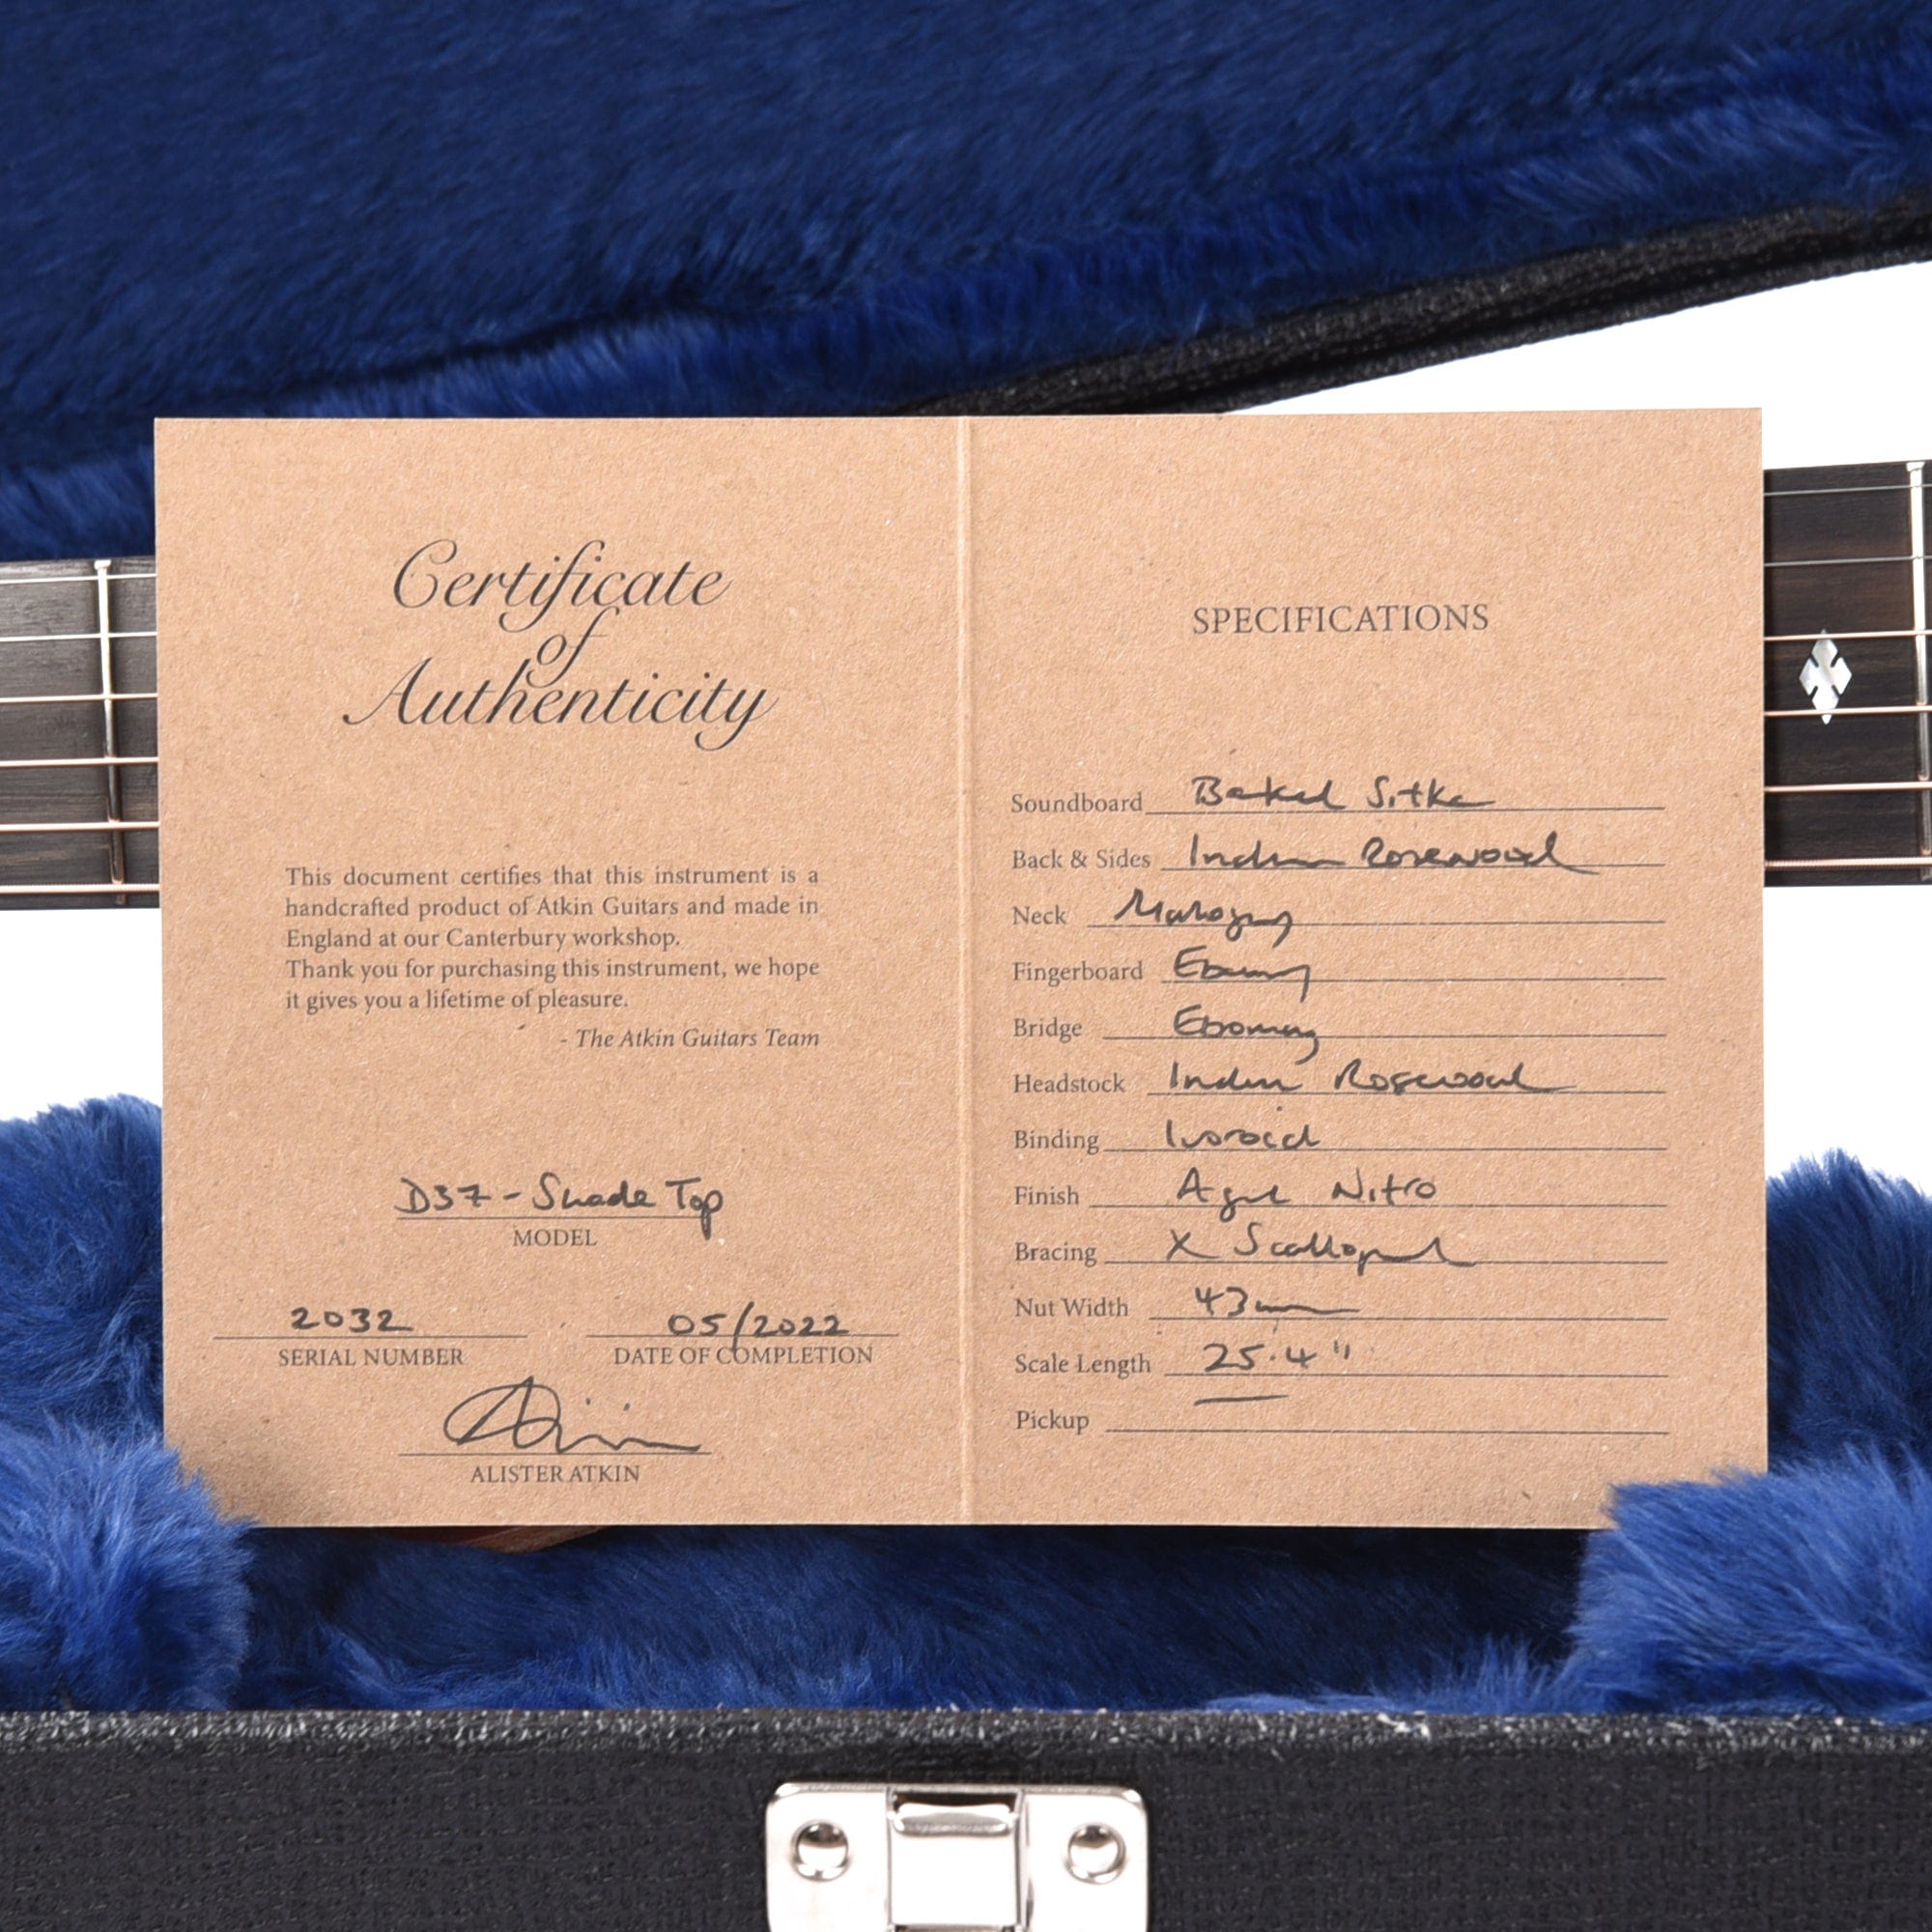 Certificate
of
Authenticity
This document certifies that this instrument is a
handcrafted product of Atkin Guitars and made in
England at our Canterbury workshop.
Thank you for purchasing this instrument, we hope
it gives you a lifetime of pleasure.
- The Atkin Guitars Team
D37 - Shade Top
MODEL
2032
SERIAL NUMBER
05/2022
DATE OF COMPLETION
Atkin
ALISTER ATKIN
SPECIFICATIONS
Soundboard Baked Sitka
Back & Sides Indian Rosewood
Neck Mahogany
Fingerboard Ebony
Bridge Ebony
Headstock Indian Rosewood
Binding Ivoroid
Finish Aged Nitro
Bracing X Scalloped
Nut Width 43mm
Scale Length 25.4"
Pickup —